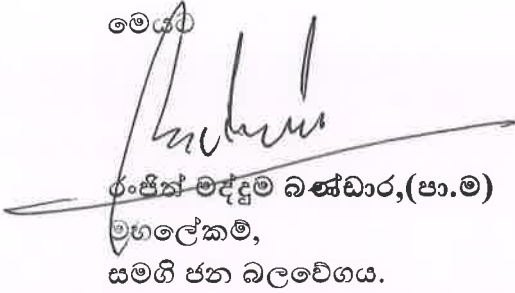 මෙයට
රංජිත් මද්දුම බණ්ඩාර,(පා.ම)
මහලේකම්,
සමගි ජන බලවේගය.